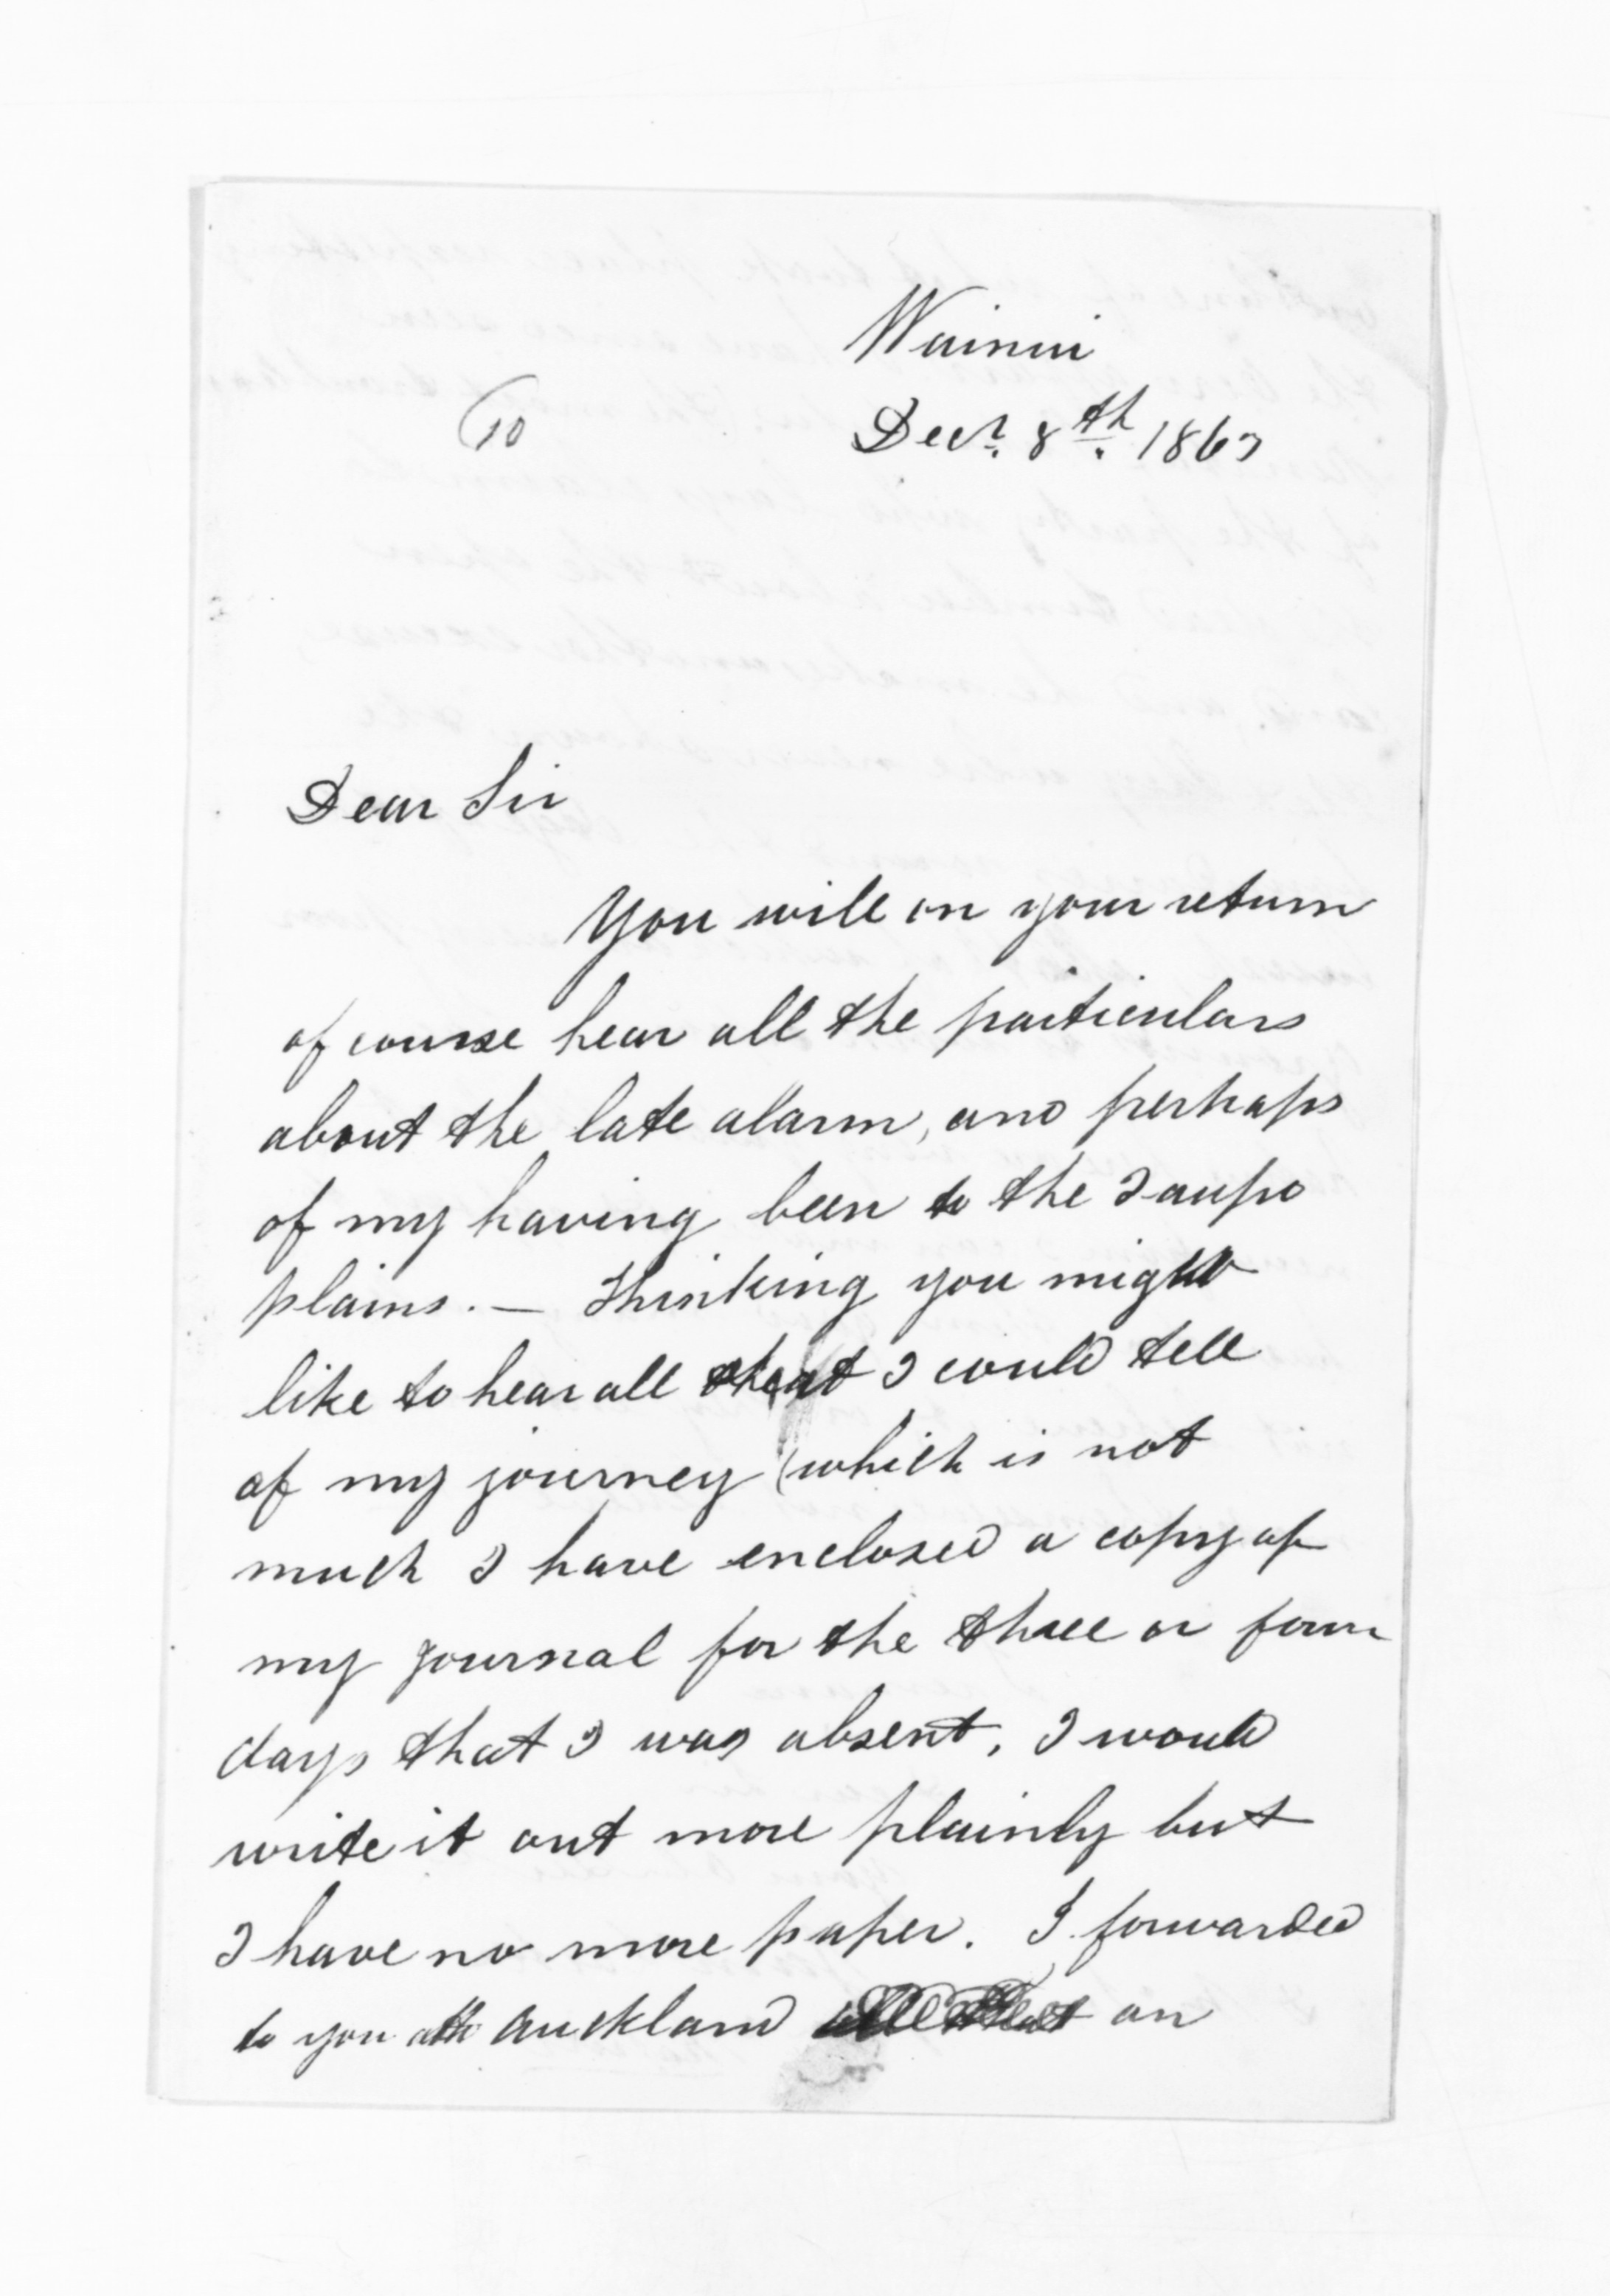 Wainui
(10
Decr. 8th. 1867
Dear Sir
You will on your return
of course hear all the particulars
about the late alarm, and perhaps
of my having been to the Taupo
plains. — Thinking you might
like to hear all that I could tell
of my journey (which is not
much I have enclosed a copy of
my journal for the three or four
days that I was absent. I would
write it out more plainly but
I have no more paper. I forwarded
to you Auckland an